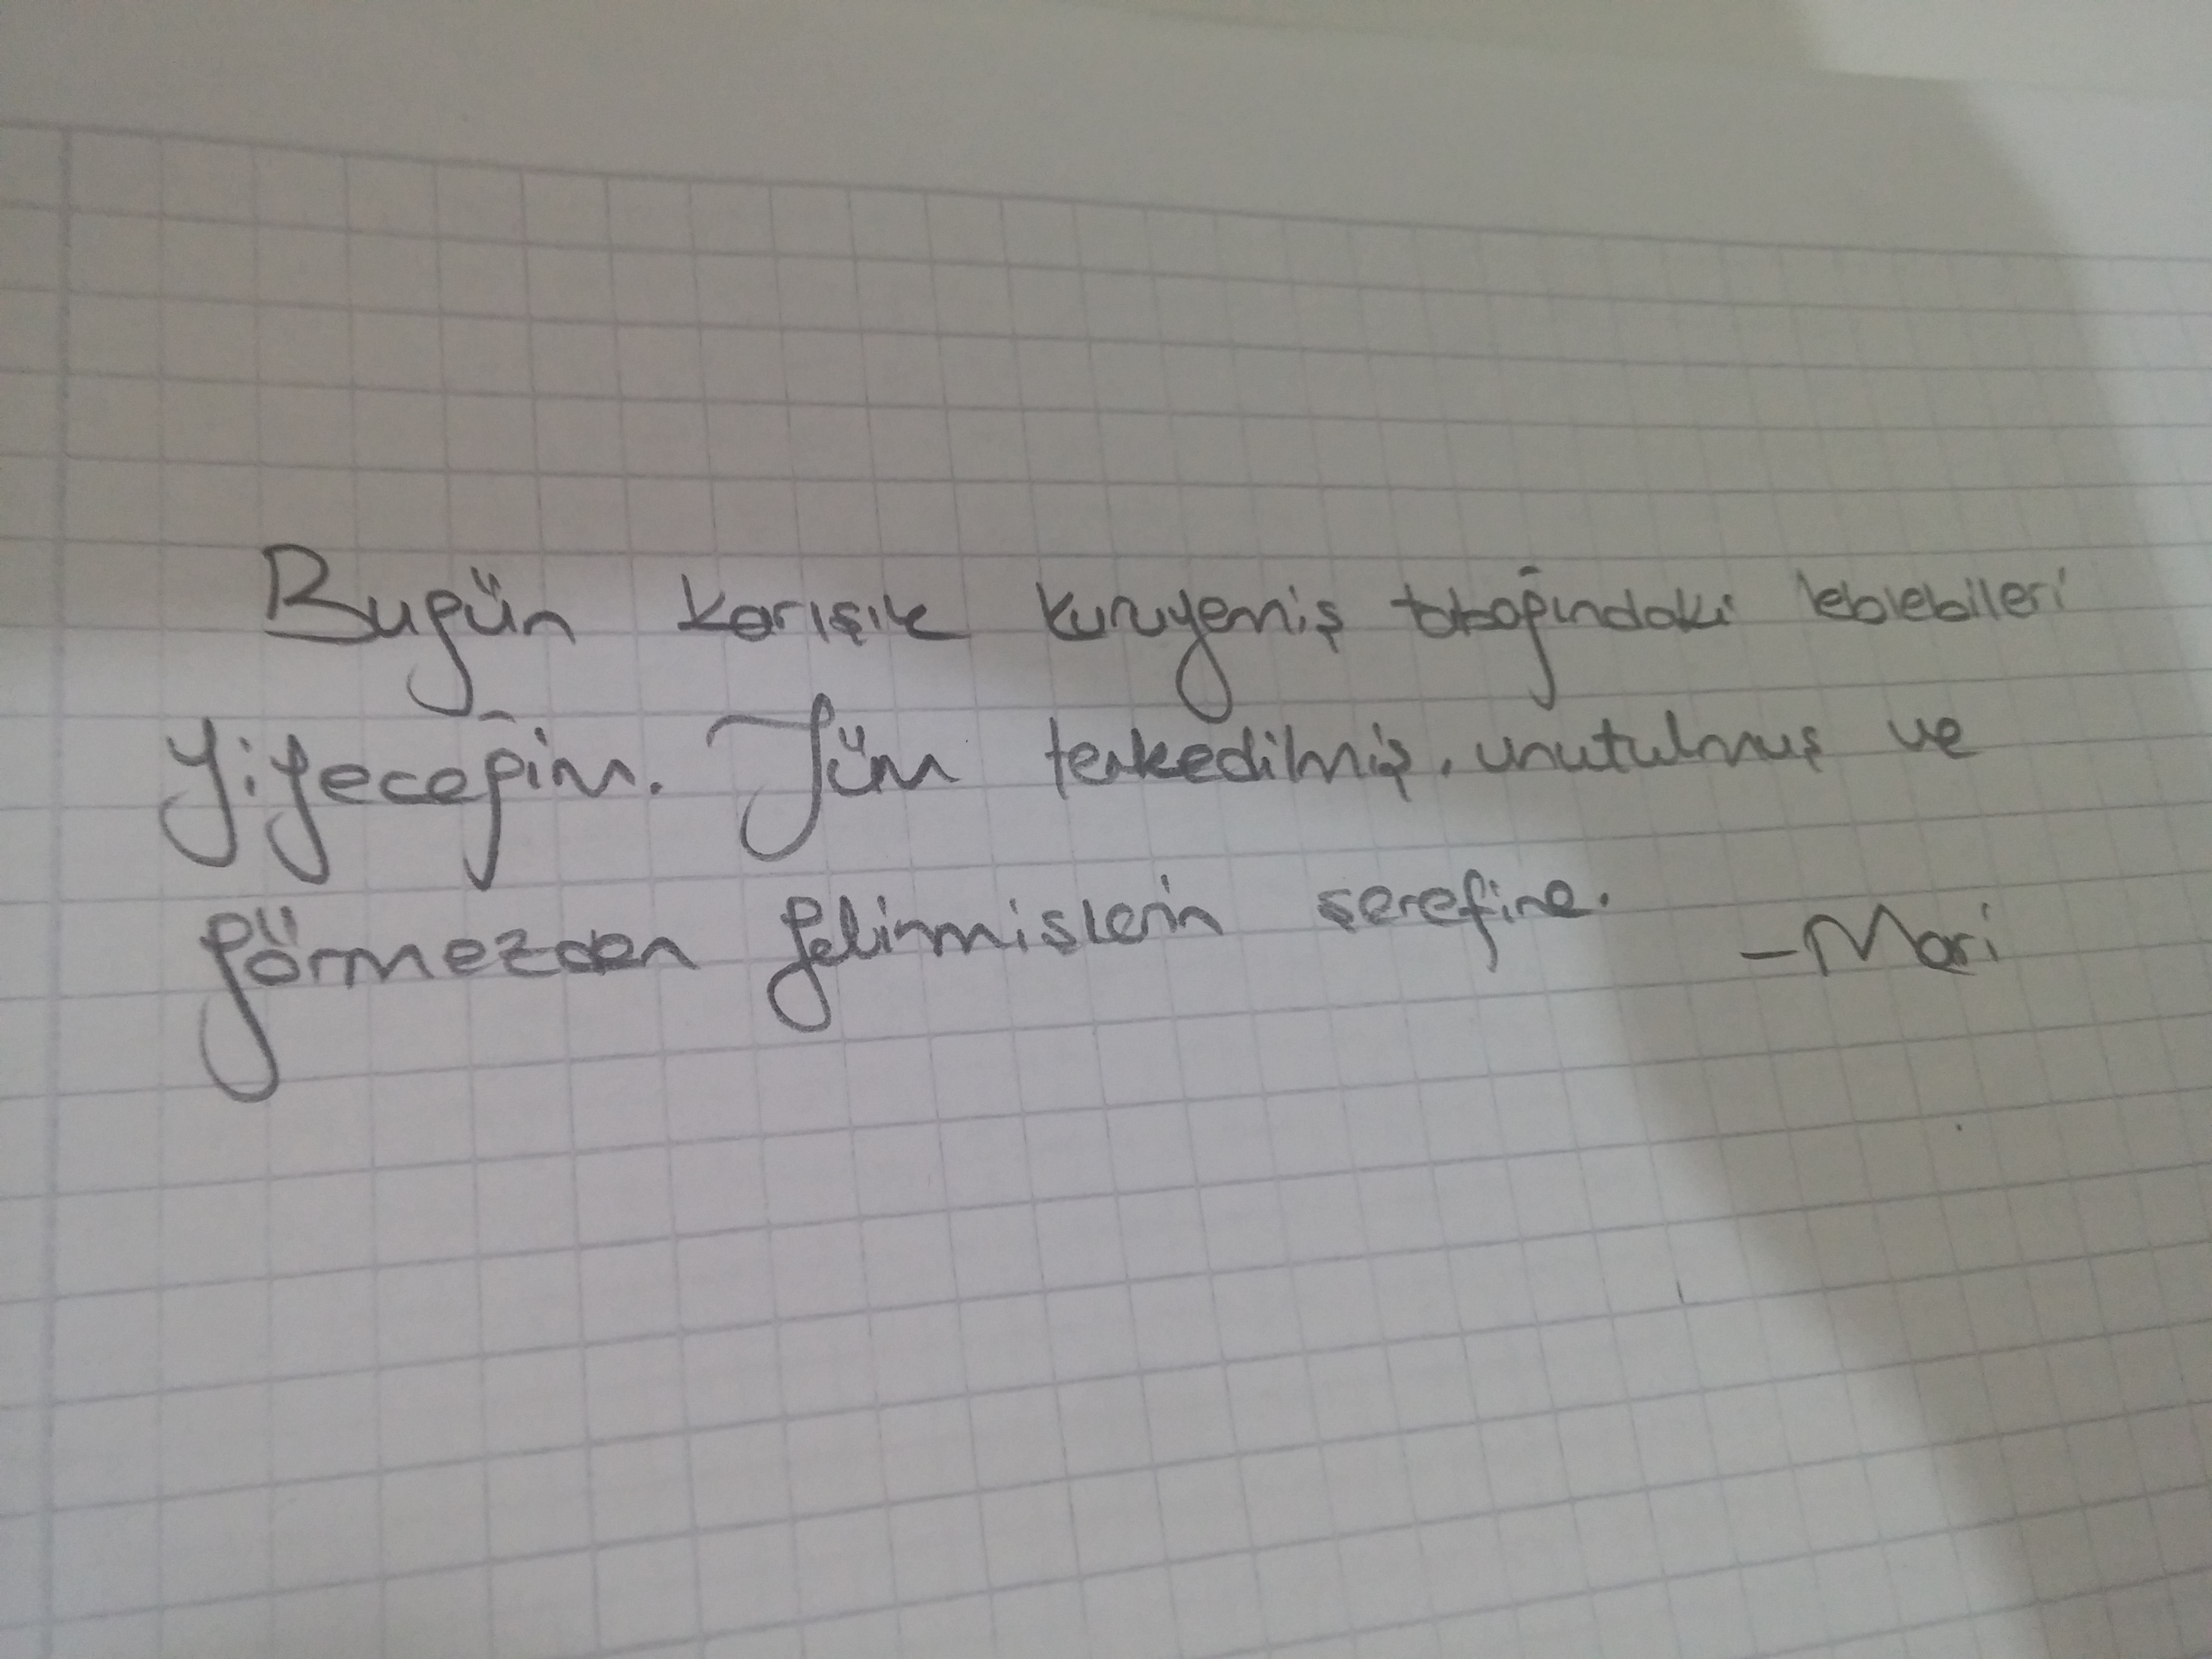 Bugün karışık kuruyemiş tabağındaki leblebileri
yiyeceğim. Tüm terkedilmiş, unutulmuş ve
görmezden gelinmişlerin şerefine.
-Mari